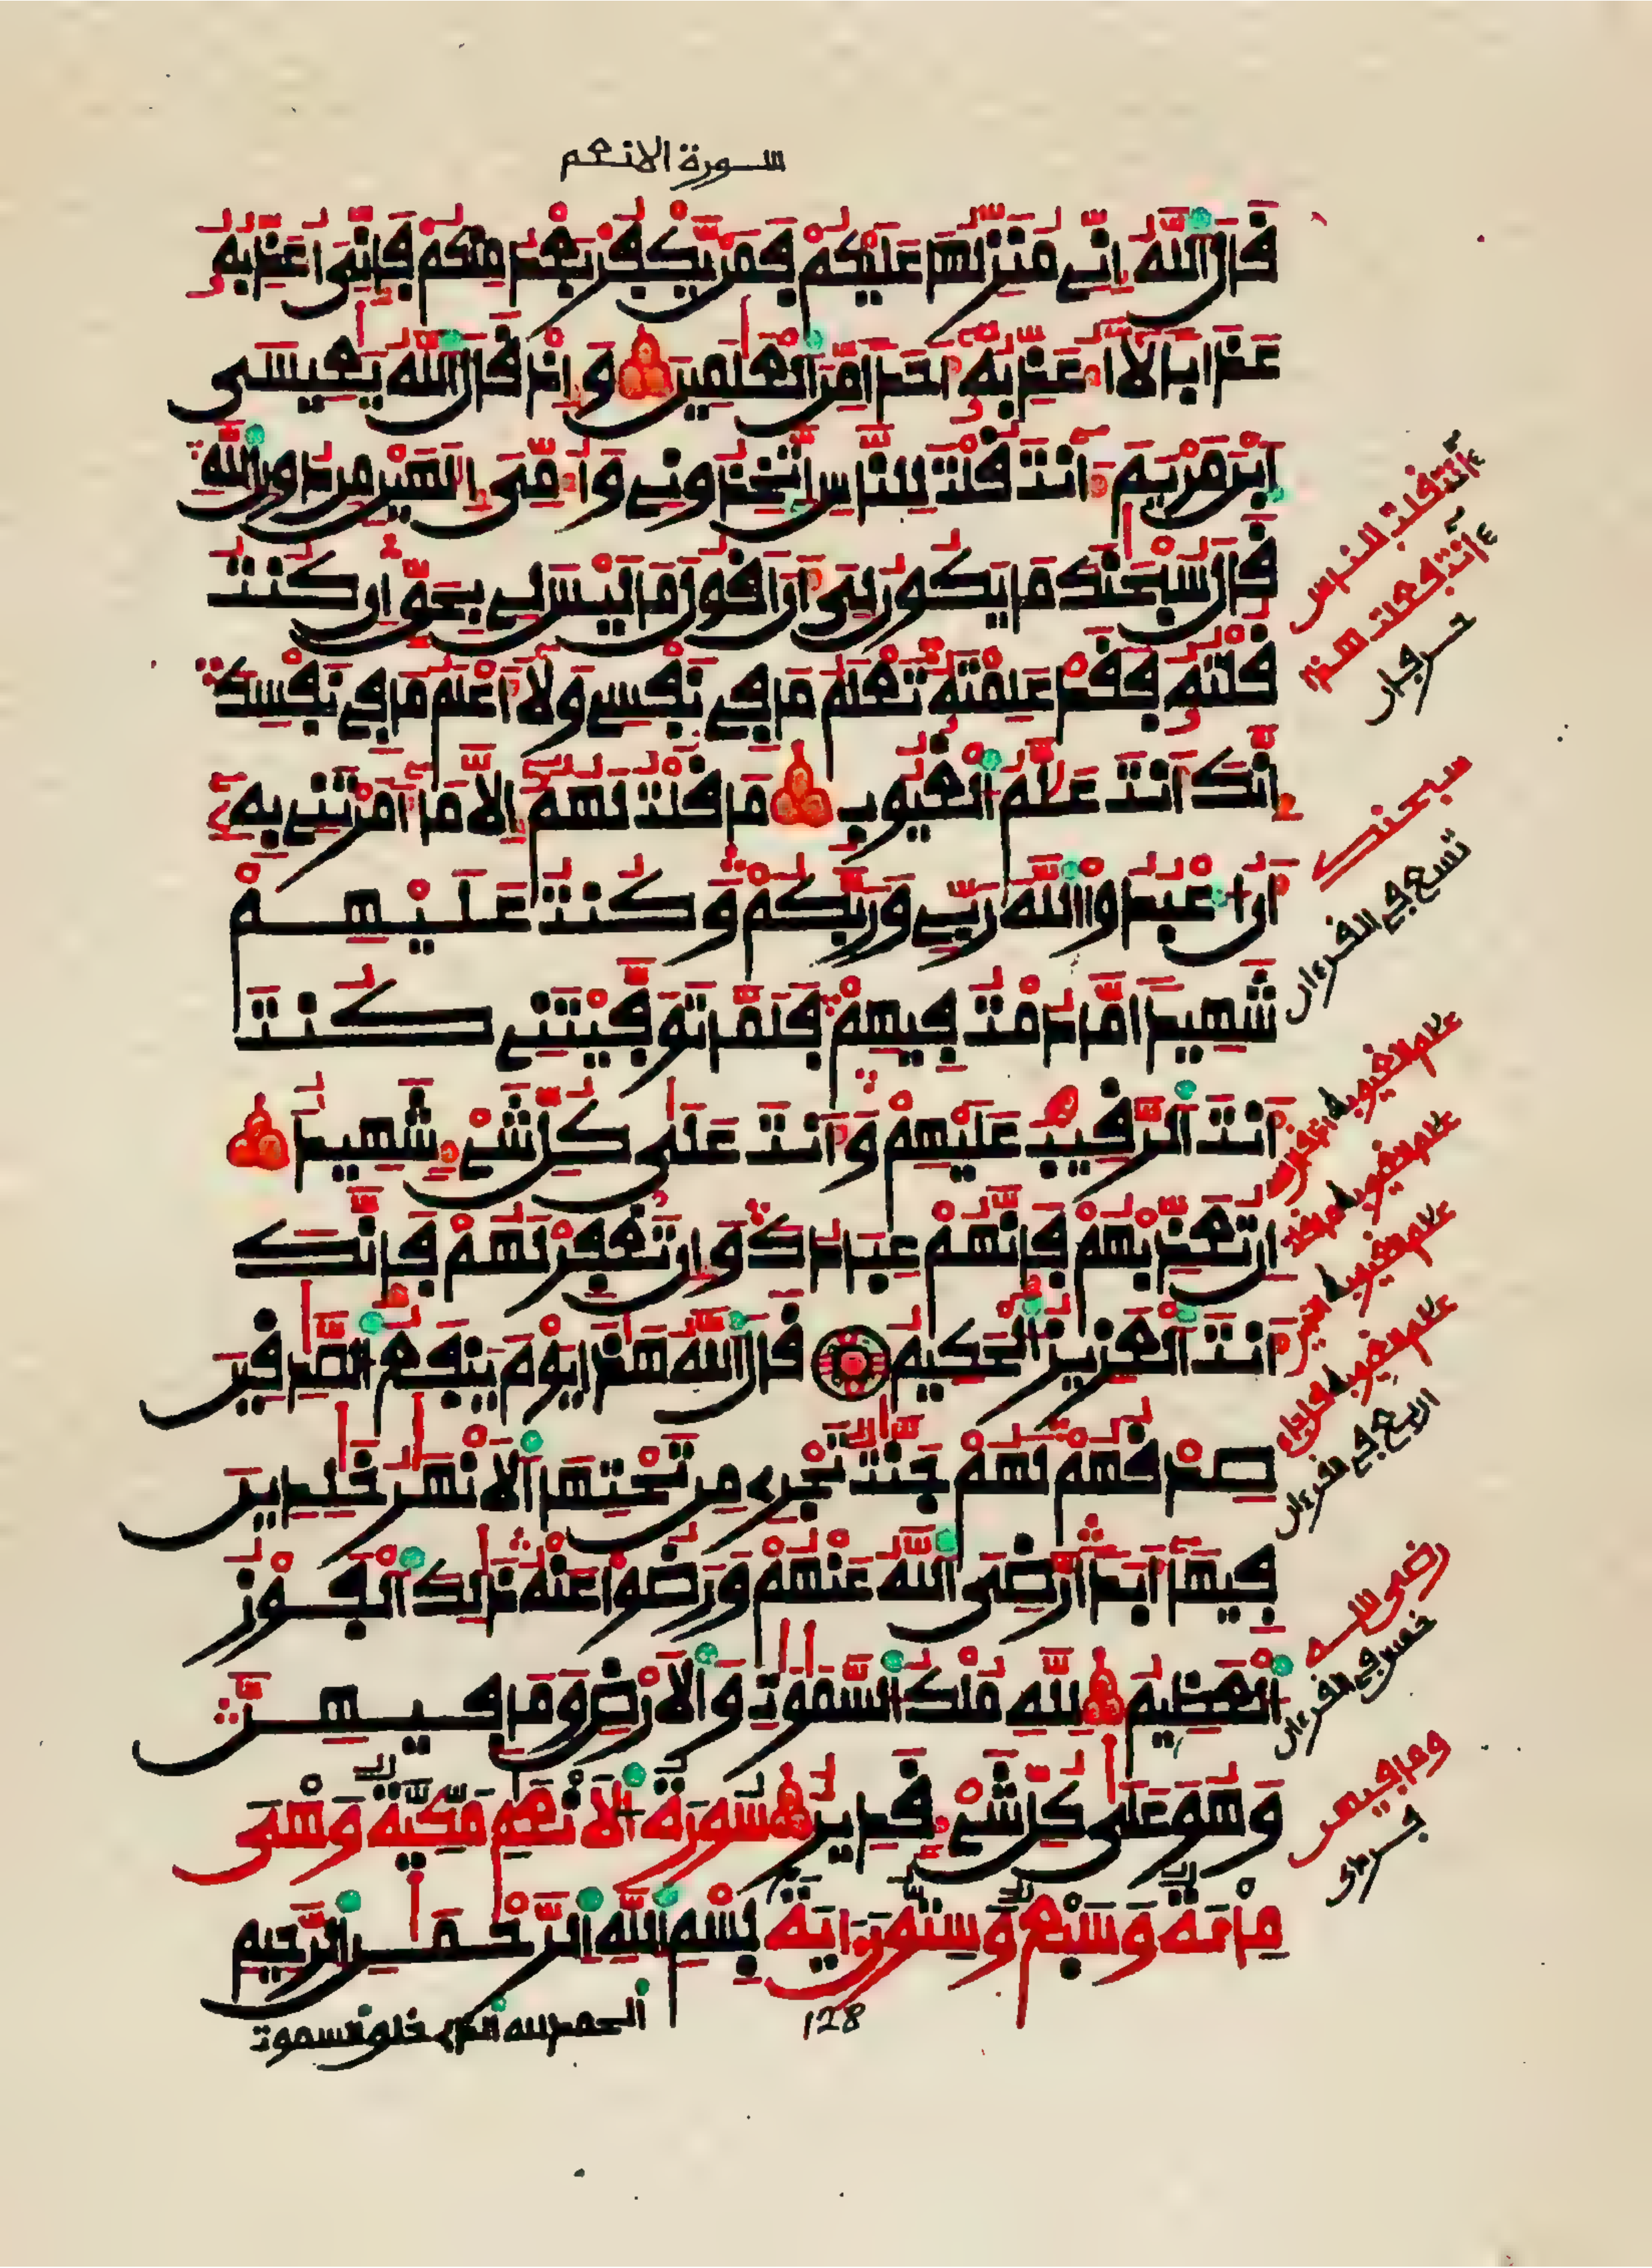 سورة الانعم
قَالَ ٱللَّهُ إِنِّے مُنَزِّلُهَا عَلَيْكُمْ فَمَنْ يَّكْفُرْ بَعْدُ مِنكُمْ فَإِنِّىَ أُعَذِّبُهُۥ
عَذَاباً لَّآ أُعَذِّبُهُۥٓ أَحَداً مِّنَ ٱلْعَٰلَمِينَ وَإِذْ قَالَ ٱللَّهُ يَٰعِيسَى
ٱبْنَ مَرْيَمَ ءَآنتَ قُلْتَ لِلنَّاسِ ٱتَّخِذُونِے وَأُمِّىَ إِلَٰهَيْنِ مِن دُونِ ٱللَّهِ
قَالَ سُبْحَٰنَكَ مَا يَكُونُ لِىَ أَنَ اَقُولَ مَا لَيْسَ لِے بِحَقٍّ إِن كُنتُ
قُلْتُهُۥ فَقَدْ عَلِمْتَهُۥ تَعْلَمُ مَا فِے نَفْسِے وَلَآ أَعْلَمُ مَا فِے نَفْسِكَ
إِنَّكَ أَنتَ عَلَّٰمُ ٱلْغُيُوبِ مَا قُلْتُ لَهُمُۥٓ إِلَّا مَآ أَمَرْتَنِے بِهِۦٓ
أَنُ اُعْبُدُوا۟ ٱللَّهَ رَبِّے وَرَبَّكُمْ وَكُنتُ عَلَيْهِمْ
شَهِيداً مَّا دُمْتُ فِيهِمْ فَلَمَّا تَوَفَّيْتَنِے كُنتَ
أَنتَ ٱلرَّقِيبَ عَلَيْهِمْ وَأَنتَ عَلَىٰ كُلِّ شَےْءٍ شَهِيدٌ
إِن تُعَذِّبْهُمْ فَإِنَّهُمْ عِبَادُكَ وَإِن تَغْفِرْ لَهُمْ فَإِنَّكَ
أَنتَ ٱلْعَزِيزُ ٱلْحَكِيمُ قَالَ ٱللَّهُ هَٰذَا يَوْمَ يَنفَعُ ٱلصَّٰدِقِينَ
صِدْقُهُمْ لَهُمْ جَنَّٰتٌ تَجْرِے مِن تَحْتِهَا ٱلْأَنْهَٰرُ خَٰلِدِينَ
فِيهَآ أَبَداً رَّضِىَ ٱللَّهُ عَنْهُمْ وَرَضُوا۟ عَنْهُ ذَٰلِكَ ٱلْفَوْزُ
ٱلْعَظِيمُ لِلَّهِ مُلْكُ ٱلسَّمَٰوَٰتِ وَٱلْأَرْضِ وَمَا فِيهِنَّ
وَهُوَ عَلَىٰ كُلِّ شَےْءٍ قَدِيرٌ سُورَةُ ٱلْأَنْعَٰمِ مَكِّيَّةٌ وَهْىَ
مِائَةٌ وَسَبْعٌ وَسِتُّونَ ءَايَةً بِسْمِ ٱللَّهِ ٱلرَّحْمَٰنِ ٱلرَّحِيمِ
الحمد لله الذے خلق السموت
128
ءانت قلت للناس
ءانت فعلت هذا
حرفان
سبحنك
تسع في القرءان
علم الغيوب
علم الغيوب
علم الغيوب
علم الغيوب
اربع في القرءان
رضي الله
خمس في القرءان
وما فيهن